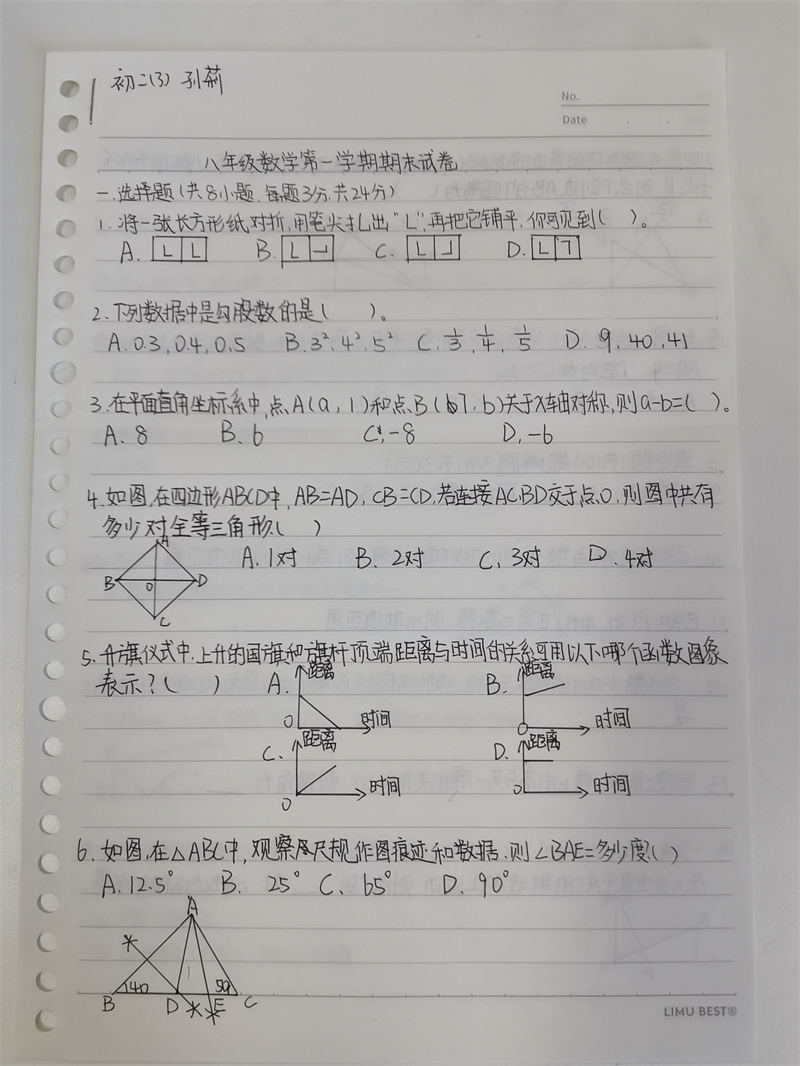 初二(3) 孙莉
No.
Date
八年级数学第一学期期末试卷
一.选择题(共8小题.每题3分.共24分)
1.将一张长方形纸对折,用笔尖扎出"L",再把它铺平,你可见到( )。
A. B. C. D.
2.下列数据中是勾股数的是( )。
A.0.3,0.4,0.5 B.3²,4²,5² C.1/3,1/4,1/5 D.9,40,41
3.在平面直角坐标系中,点A(a,1)和点B(7,b)关于X轴对称,则a-b=( )。
A.8 B.6 C.-8 D.-6
4.如图,在四边形ABCD中,AB=AD,CB=CD,若连接AC,BD交于点O,则图中共有
多少对全等三角形( )
A.1对 B.2对 C.3对 D.4对
A
B O D
C
5.升旗仪式中.上升的国旗和旗杆顶端距离与时间的关系可用以下哪个函数图象
表示?( ) A. 距离 B. 距离
O 时间 O 时间
C. 距离 D. 距离
O 时间 O 时间
6.如图,在△ABC中,观察尺规作图痕迹和数据.则∠BAE=多少度( )
A.12.5° B. 25° C.65° D.90°
A
40 50
B D E C
LIMU BEST®